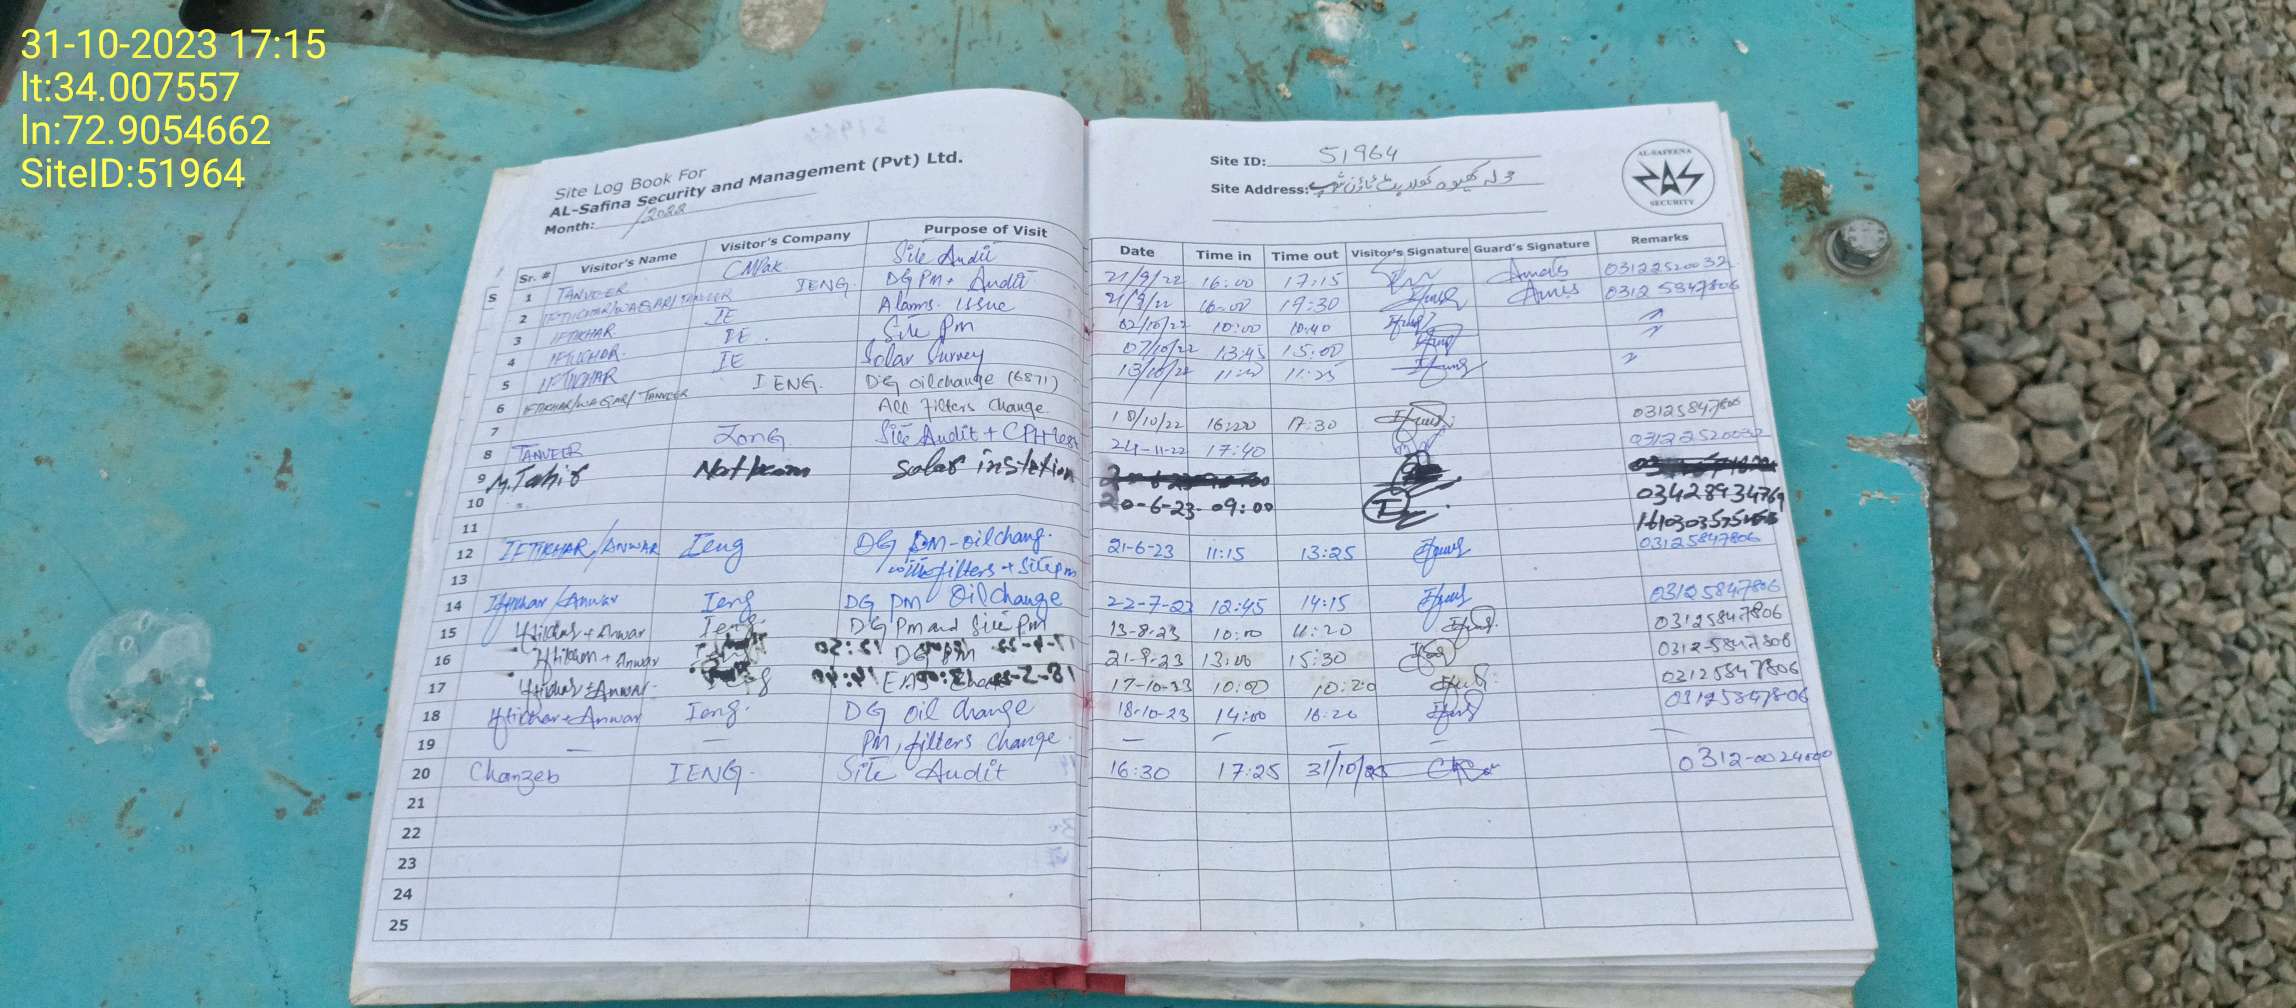 31-10-2023 17:15
lt:34.007557
ln:72.9054662
SiteID:51964
Site Log Book For
AL-Safina Security and Management (Pvt) Ltd.
Month: /2022
Site ID: 51964
Site Address:
AL-SAFEENA
SAS
SECURITY
Sr. # Visitor's Name Visitor's Company Purpose of Visit Date Time in Time out Visitor's Signature Guard's Signature Remarks
1 TANVEER CMPak Site Audit 21/9/22 16:00 17:15 03122520032
2 IFTIKHAR/WAQAR/TANVEER IENG. DG PM + Audit 21/9/22 16:00 19:30 03125847806
3 IFTIKHAR IE Alarms issue 02/10/22 10:00 10:40
4 IFTIKHAR IE. Site Pm 07/10/22 13:45 15:00
5 IFTIKHAR IE Solar Survey 13/10/22 11:25
6 IFTIKHAR/WAQAR/TANVEER IENG. DG oilchange (6871)
7 All Filters Change 18/10/22 16:20 17:30 03125847806
8 TANVEER Zong Site Audit + CPH test 24-11-22 17:40 03122520032
9 M.Tahir solar
10 20-6-23- 09:00 03428934769
11
12 IFTIKHAR/ANWAR Ieng DG PM-oilchang. 21-6-23 11:15 13:25 03125847806
13 filters + Site pm
14 Iftikhar/Anwar Ieng DG PM Oil Change 22-7-23 12:45 14:15 03125847806
15 Iftikhar + Anwar Ieng. DG Pm and Site Pm 13-8-23 10:00 11:20 03125847806
16 Iftikhar + Anwar DG PM 21-9-23 13:00 15:30 0312-5847806
17 Iftikhar + Anwar 17-10-23 10:00 10:20 03125847806
18 Iftikhar + Anwar Ieng. DG Oil Change 18-10-23 14:00 16:20 03125847806
19 — — PM, filters change. — — — — —
20 Chanzeb IENG. Site Audit 16:30 17:25 31/10/23
21
22
23
24
25